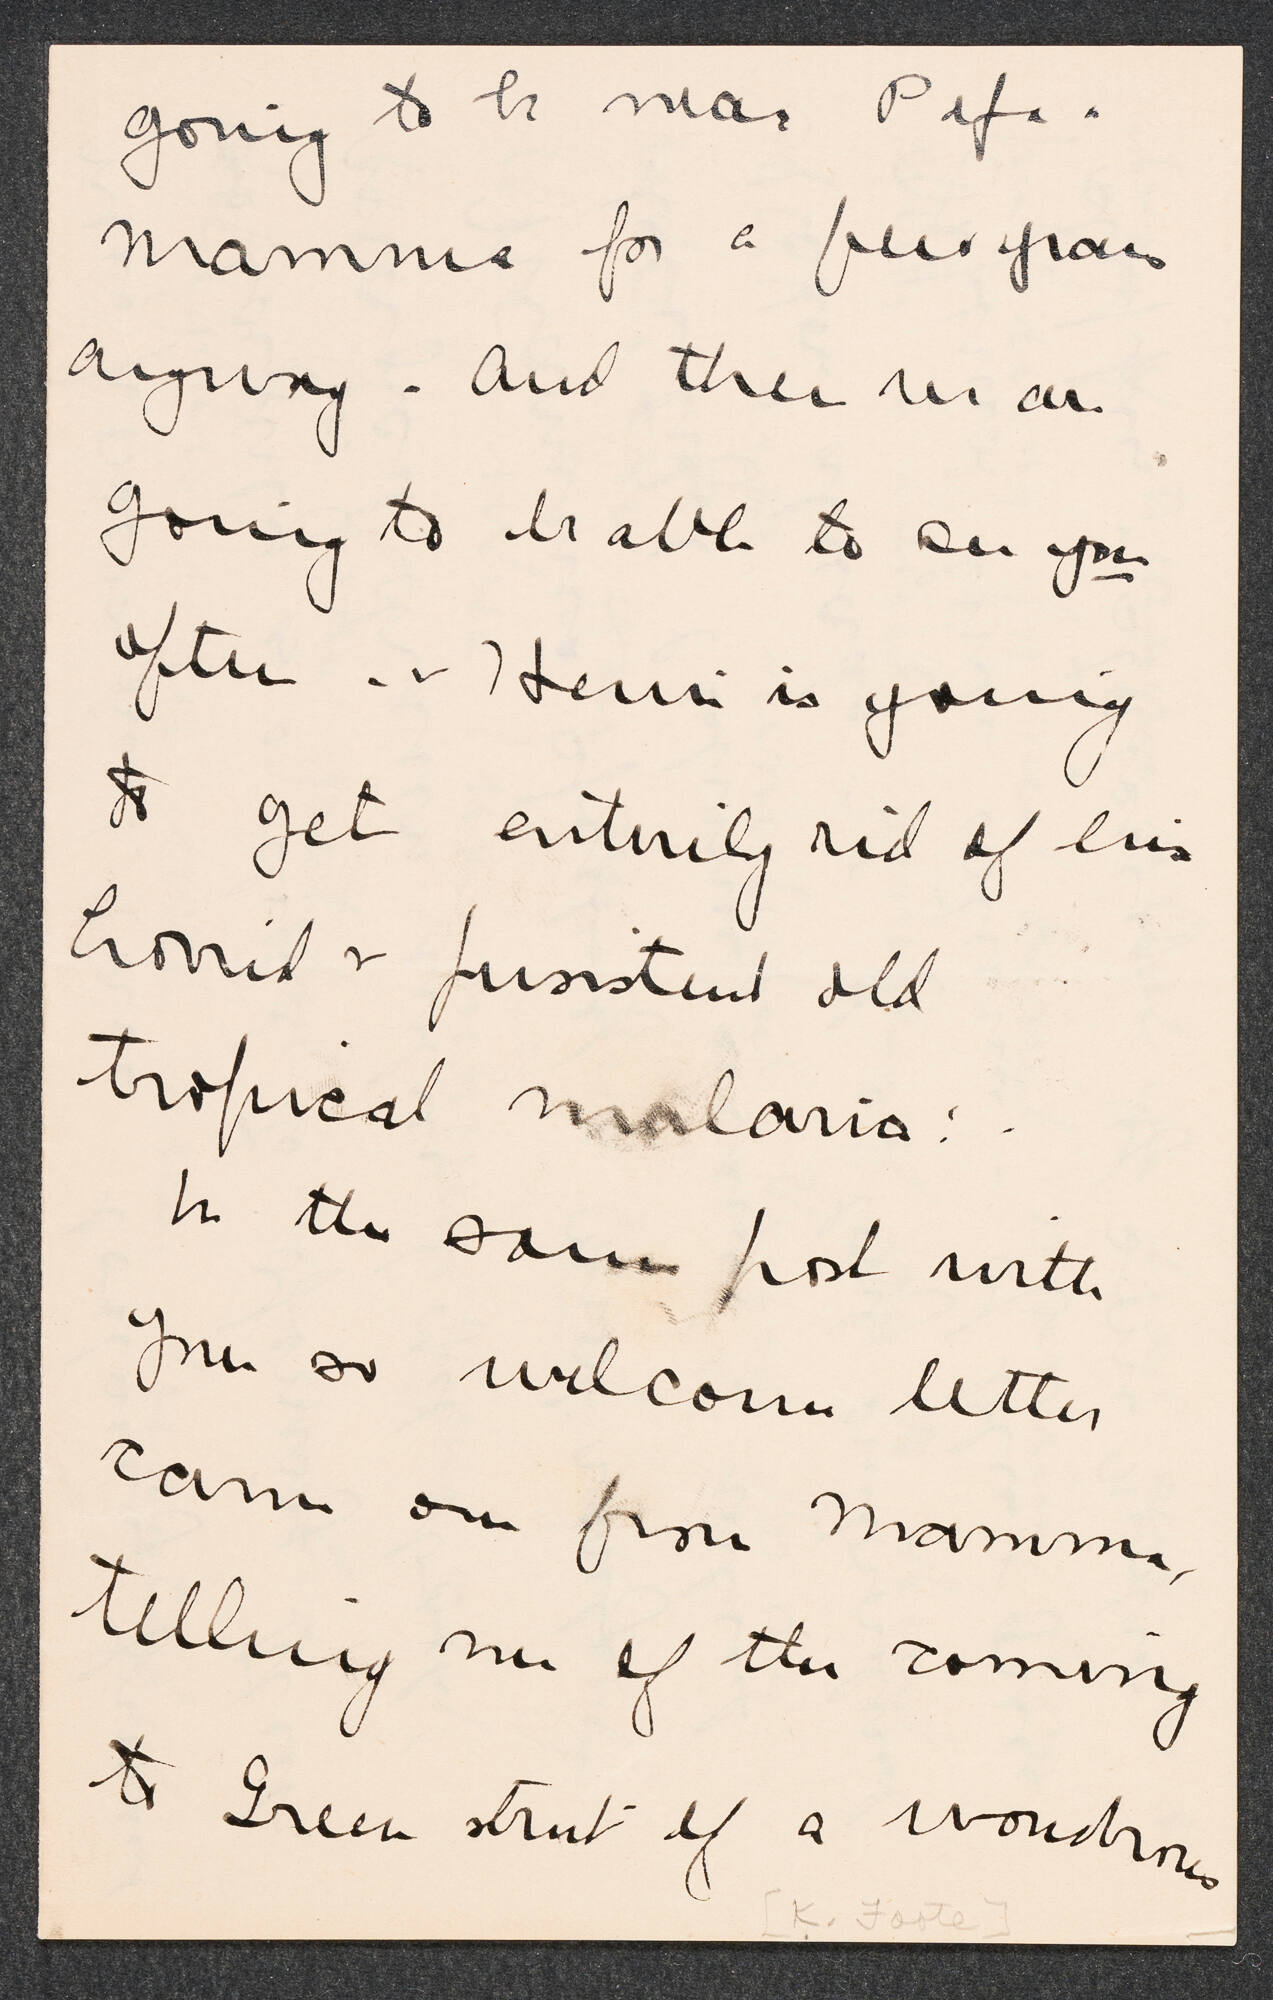 going to be near Papa &
Mamma for a few years
anyway - And then we are
going to be able to see you
often - & Henri is going
to get entirely rid of his
horrid & persistent old
tropical malaria: -
In the same post with
your so welcome letter
came one from Mamma,
telling me of the coming
to Green street of a wondrous
[K. Foote]